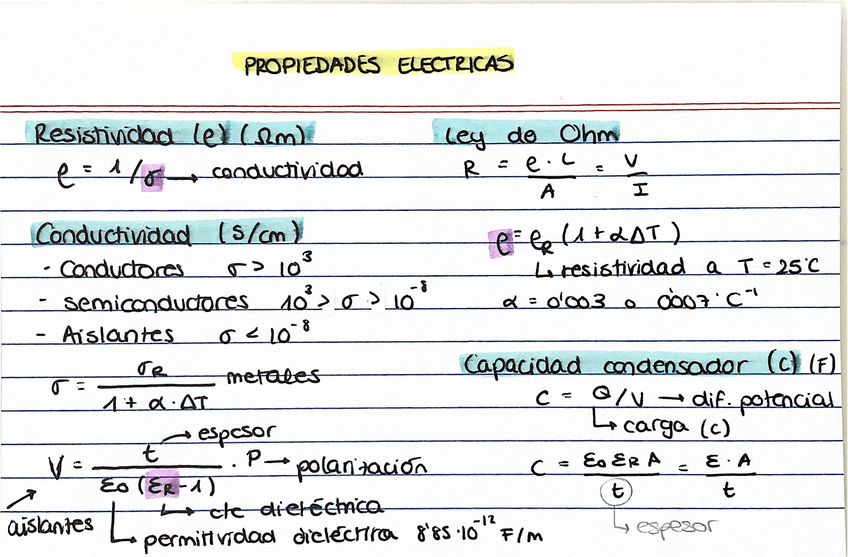 PROPIEDADES ELECTRICAS
Resistividad (ρ) (Ωm)
ρ = 1/σ → conductividad
Conductividad (S/cm)
- Conductores σ > 10³
- semiconductores 10³ > σ > 10⁻⁸
- Aislantes σ < 10⁻⁸
σ = σR / 1 + α·ΔT metales
V = t / ε0 (εR-1) · P → polarización
→ espesor
aislantes
↳ cte dieléctrica
↳ permitividad dieléctrica 8'85·10⁻¹² F/m
Ley de Ohm
R = ρ·L / A = V / I
ρ = ρR (1+αΔT)
↳ resistividad a T = 25°C
α = 0'003 o 0'007 °C⁻¹
Capacidad condensador (C) (F)
C = Q/V → dif. potencial
↳ carga (c)
C = ε0 εR A / t = ε·A / t
↳ espesor